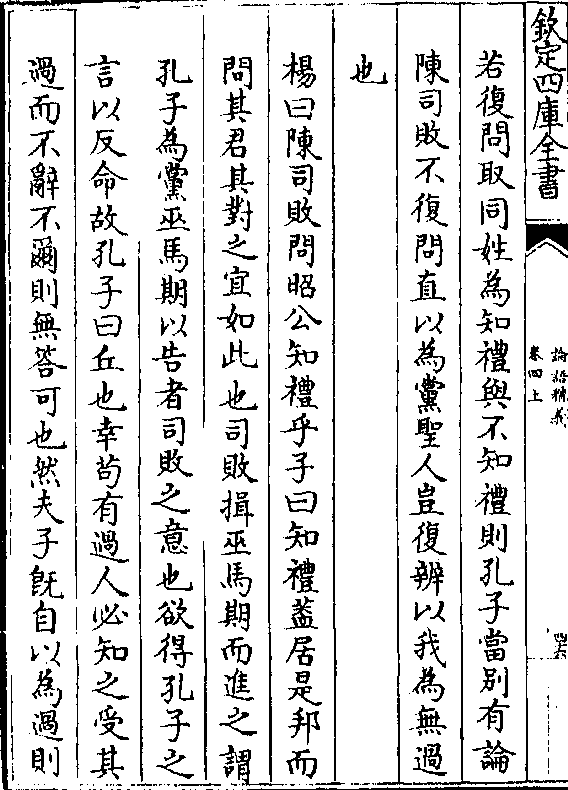 欽定四庫全書
論語精義
卷四上
若復問取同姓為知禮與不知禮則孔子當別有論
陳司敗不復問直以為黨聖人豈復辨以我為無過
也
楊曰陳司敗問昭公知禮乎子曰知禮葢居是邦而
問其君其對之宜如此也司敗揖巫馬期而進之謂
孔子為黨巫馬期以告者司敗之意也欲得孔子之
言以反命故孔子曰丘也幸茍有過人必知之受其
過而不辭不爾則無答可也然夫子旣自以為過則